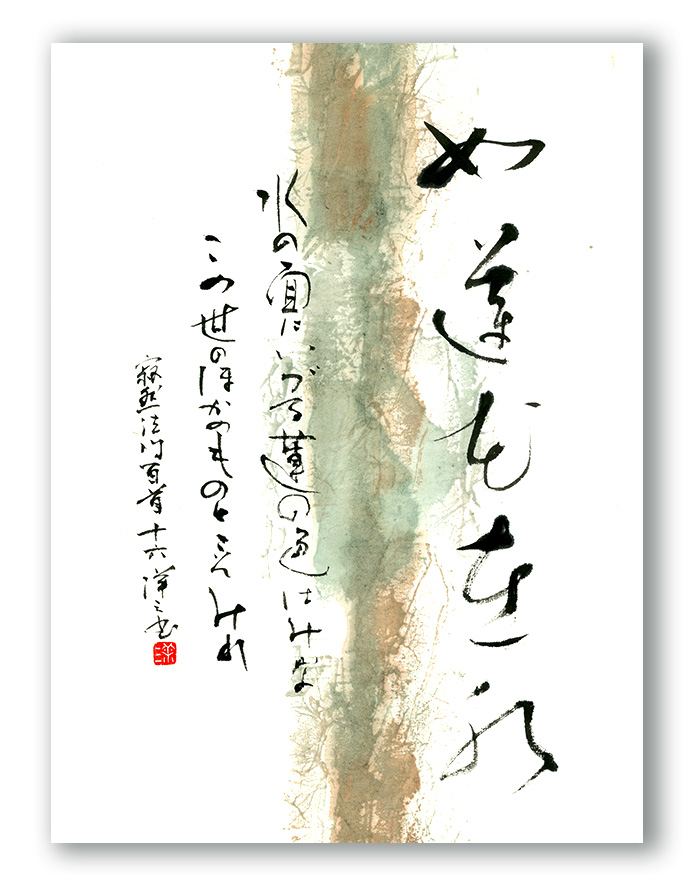 如蓮花在水
水の面にいづる蓮の色はみな
この世のほかのものとこそみれ
寂然法門百首 十六 洋三書